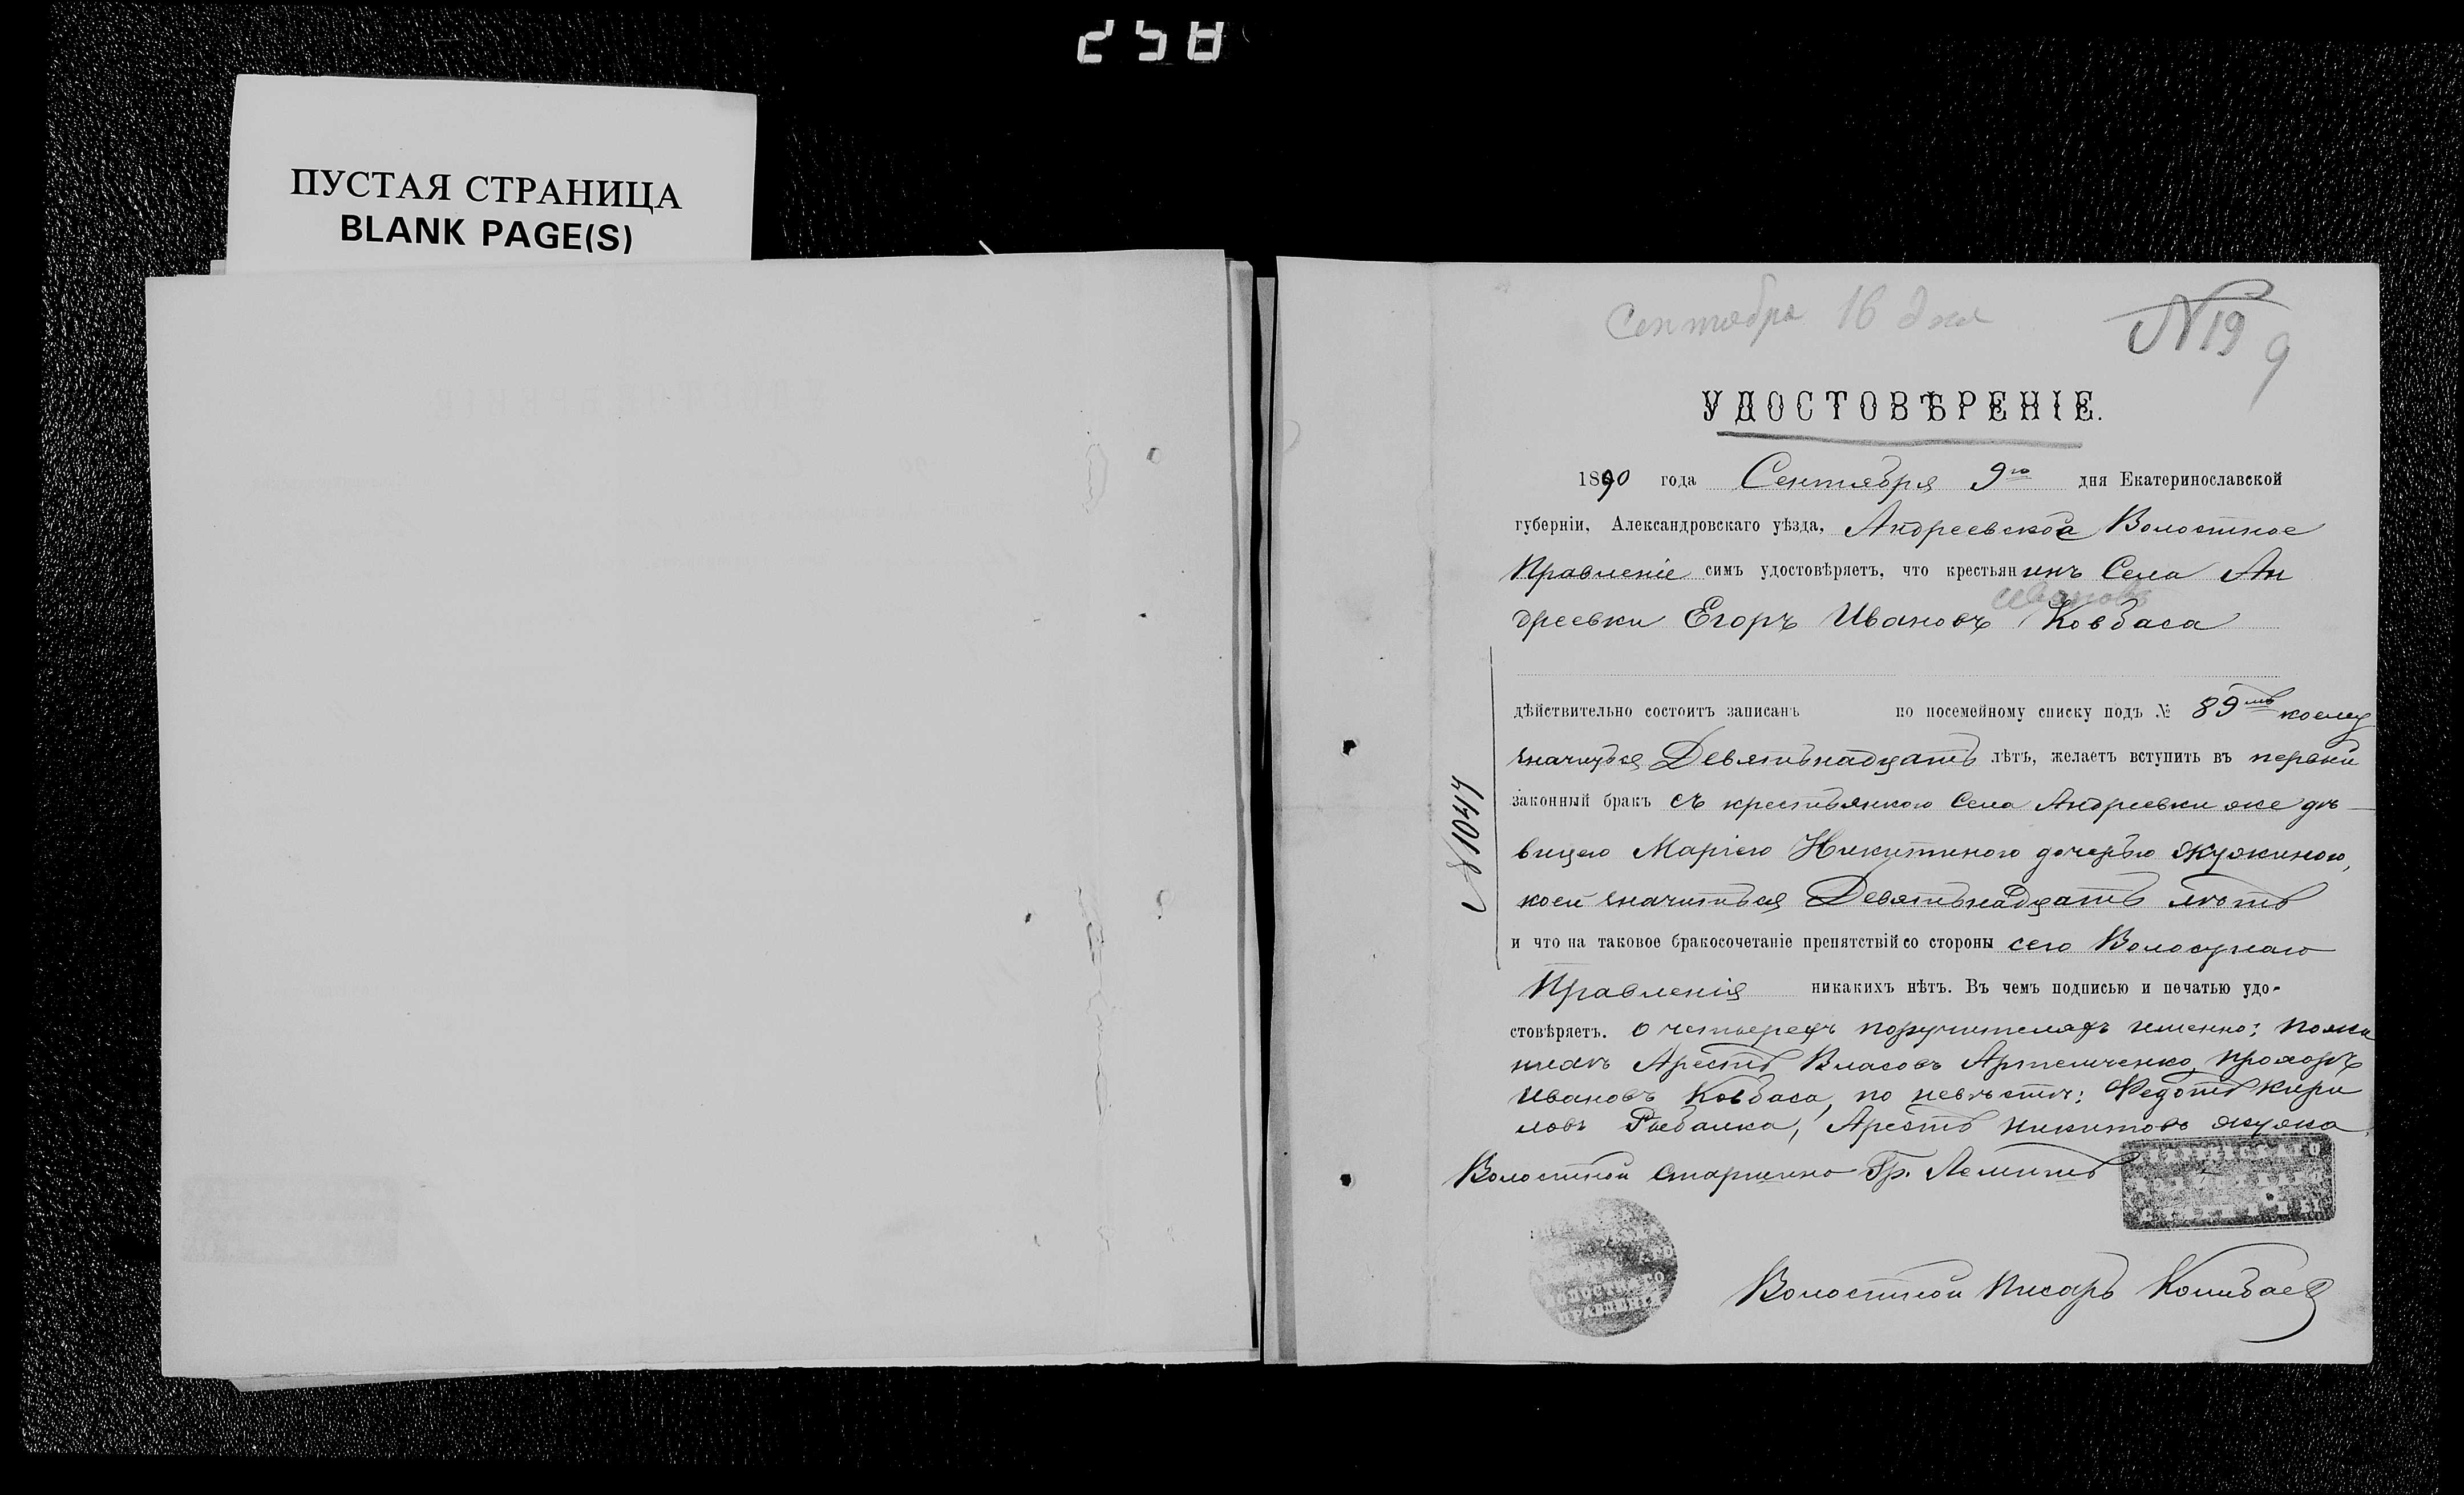 258
ПУСТАЯ СТРАНИЦА
BLANK PAGE(S)
Сентября 16 дня
№ 19
9
УДОСТОВѢРЕНІЕ.
1890 года Сентября 9го дня Екатеринославской
губерніи, Александровскаго уѣзда, Андреевское Волостное
Правленіе симъ удостовѣряетъ, что крестьянинъ Села Ан
Ивановъ
дреевки Егоръ Ивановъ Ковбаса
дѣйствительно состоитъ записанъ по посемейному списку подъ № 89мъ коему
значится Девятьнадцать лѣтъ, желаетъ вступить въ первый
законный бракъ съ крестьянкою Села Андреевки же дѣ
вицею Маріею Никитиною дочерью Жужкиною,
коей значиться Девятьнадцать лѣтъ
и что на таковое бракосочетаніе препятствій со стороны сего Волостнаго
Правленія никакихъ нѣтъ. Въ чемъ подписью и печатью удо-
стовѣряетъ. О четырехъ поручителяхъ именно: по же
нихѣ Арестъ Власовъ Артемченко, Прохоръ
Ивановъ Ковбаса, по невѣстѣ: Федотъ Кири
ловъ Рыбалка, Арестъ Никитовъ Жужка.
Волостной Старшина Гр.
ВОЛОСТНАГО
ПРАВЛЕНІЯ
Волостной Писарь
№ 1044